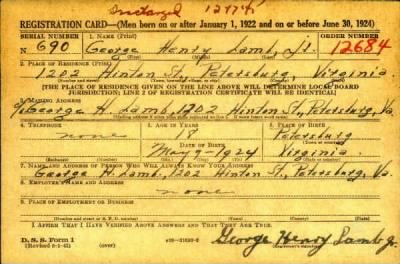 12774
REGISTRATION CARD—(Men born on or after January 1, 1922 and on or before June 30, 1924)
SERIAL NUMBER 1. NAME (Print) ORDER NUMBER
N 690 George Henry Lamb, Jr. 12684
2. PLACE OF RESIDENCE (Print)
1202 Hinton St., Petersburg, Virginia
[THE PLACE OF RESIDENCE GIVEN ON THE LINE ABOVE WILL DETERMINE LOCAL BOARD
JURISDICTION; LINE 2 OF REGISTRATION CERTIFICATE WILL BE IDENTICAL]
3. MAILING ADDRESS
c/o George H. Lamb, 1202 Hinton St., Petersburg, Va.
4. TELEPHONE 5. AGE IN YEARS 6. PLACE OF BIRTH
none 18 Petersburg
DATE OF BIRTH
May 9 1924 Virginia
(Exchange) (Number) (Mo.) (Day) (Yr.) (State or country)
7. NAME AND ADDRESS OF PERSON WHO WILL ALWAYS KNOW YOUR ADDRESS
George H. Lamb, 1202 Hinton St., Petersburg, Va.
8. EMPLOYER'S NAME AND ADDRESS
none
9. PLACE OF EMPLOYMENT OR BUSINESS
(Number and street or R. F. D. number) (Town) (County) (State)
I AFFIRM THAT I HAVE VERIFIED ABOVE ANSWERS AND THAT THEY ARE TRUE.
D. S. S. Form 1 George Henry Lamb Jr.